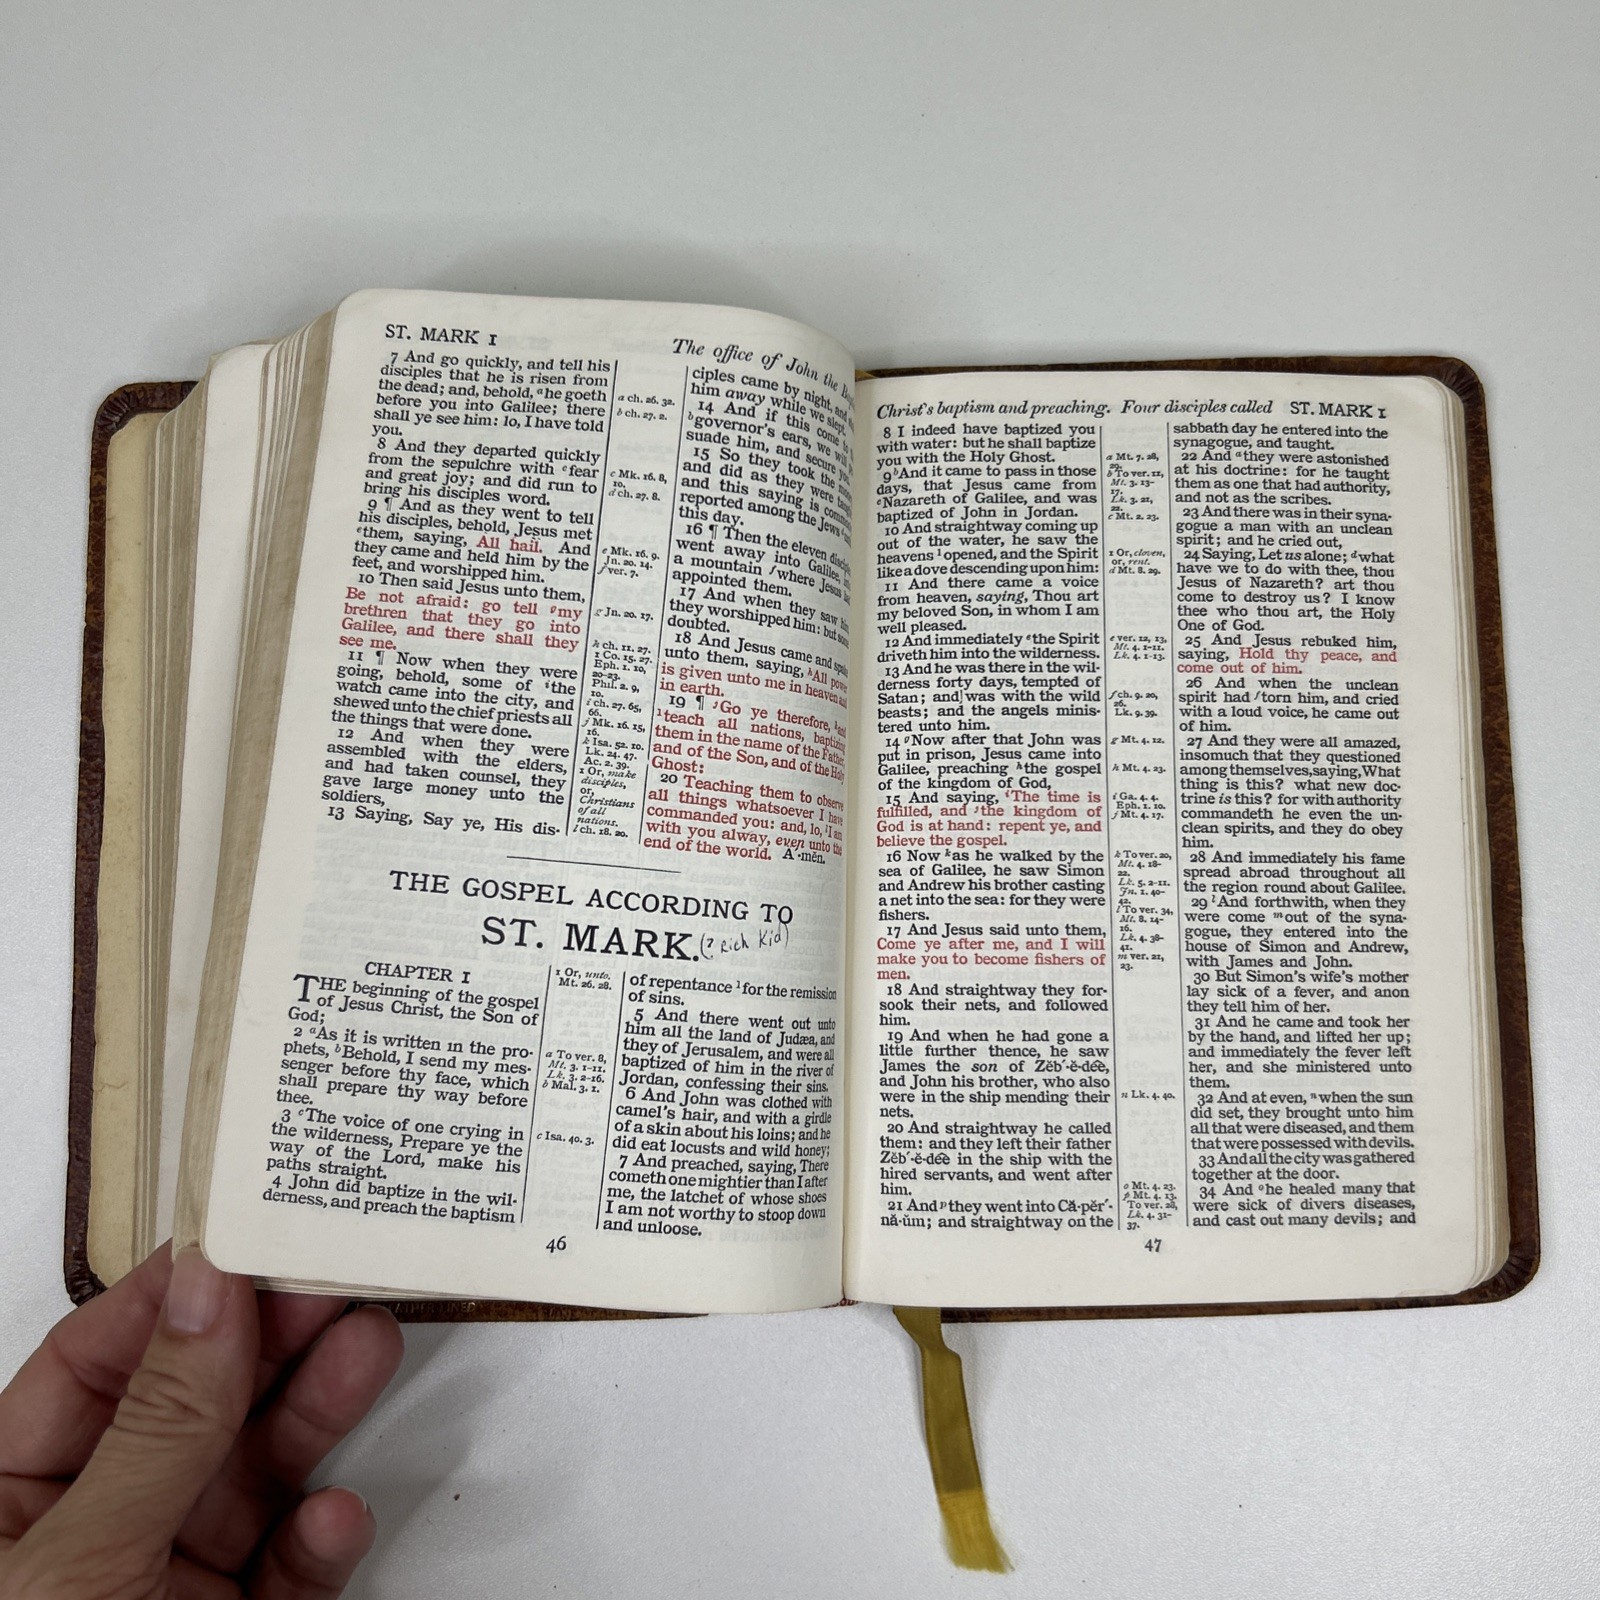 ST. MARK 1
The office of John the
7 And go quickly, and tell his
disciples that he is risen from
the dead; and, behold, ᵃhe goeth
before you into Galilee; there
shall ye see him: lo, I have told
you.
8 And they departed quickly
from the sepulchre with ᶜfear
and great joy; and did run to
bring his disciples word.
9 ¶ And as they went to tell
his disciples, behold, Jesus met
ᵉthem, saying, All hail. And
they came and held him by the
feet, and worshipped him.
10 Then said Jesus unto them,
Be not afraid: go tell ᵍmy
brethren that they go into
Galilee, and there shall they
see me.
11 ¶ Now when they were
going, behold, some of ⁱthe
watch came into the city, and
shewed unto the chief priests all
the things that were done.
12 And when they were
assembled with the elders,
and had taken counsel, they
gave large money unto the
soldiers,
13 Saying, Say ye, His dis-
a ch. 26. 32.
b ch. 27. 2.
c Mk. 16. 8,
10.
d ch. 27. 8.
e Mk. 16. 9.
Jn. 20. 14.
f ver. 7.
g Jn. 20. 17.
h ch. 11. 27.
1 Co. 15. 27.
Eph. 1. 10,
20-23.
Phil. 2. 9,
10.
i ch. 27. 65,
66.
j Mk. 16. 15,
16.
k Isa. 52. 10.
Lk. 24. 47.
Ac. 2. 39.
1 Or, make
disciples,
or,
Christians
of all
nations.
l ch. 18. 20.
ciples came by night, and
him away while we slept.
14 And if this come to
ᵇgovernor's ears, we will
suade him, and secure you.
15 So they took the money
and did as they were taught
and this saying is commonly
reported among the Jews
this day.
16 ¶ Then the eleven disciples
went away into Galilee, into
a mountain ᶠwhere Jesus had
appointed them.
17 And when they saw him
they worshipped him: but some
doubted.
18 And Jesus came and spake
unto them, saying, ʰAll power
is given unto me in heaven and
in earth.
19 ¶ ʲGo ye therefore, ᵏand
¹teach all nations, baptizing
them in the name of the Father,
and of the Son, and of the Holy
Ghost:
20 Teaching them to observe
all things whatsoever I have
commanded you: and, lo, ˡI am
with you alway, even unto the
end of the world. A´·mĕn.
THE GOSPEL ACCORDING TO
ST. MARK. (? Rich Kid)
CHAPTER 1
THE beginning of the gospel
of Jesus Christ, the Son of
God;
2 ᵃAs it is written in the pro-
phets, ᵇBehold, I send my mes-
senger before thy face, which
shall prepare thy way before
thee.
3 ᶜThe voice of one crying in
the wilderness, Prepare ye the
way of the Lord, make his
paths straight.
4 John did baptize in the wil-
derness, and preach the baptism
1 Or, unto.
Mt. 26. 28.
a To ver. 8,
Mt. 3. 1-11.
Lk. 3. 2-16.
b Mal. 3. 1.
c Isa. 40. 3.
of repentance ¹for the remission
of sins.
5 And there went out unto
him all the land of Judæa, and
they of Jerusalem, and were all
baptized of him in the river of
Jordan, confessing their sins.
6 And John was clothed with
camel's hair, and with a girdle
of a skin about his loins; and he
did eat locusts and wild honey;
7 And preached, saying, There
cometh one mightier than I after
me, the latchet of whose shoes
I am not worthy to stoop down
and unloose.
46
Christ's baptism and preaching. Four disciples called ST. MARK 1
8 I indeed have baptized you
with water: but he shall baptize
you with the Holy Ghost.
9 ᵇAnd it came to pass in those
days, that Jesus came from
ᶜNazareth of Galilee, and was
baptized of John in Jordan.
10 And straightway coming up
out of the water, he saw the
heavens ¹opened, and the Spirit
like a dove descending upon him:
11 And there came a voice
from heaven, saying, Thou art
my beloved Son, in whom I am
well pleased.
12 And immediately ᵉthe Spirit
driveth him into the wilderness.
13 And he was there in the wil-
derness forty days, tempted of
Satan; and was with the wild
beasts; and the angels minis-
tered unto him.
14 ᵍNow after that John was
put in prison, Jesus came into
Galilee, preaching ʰthe gospel
of the kingdom of God,
15 And saying, ⁱThe time is
fulfilled, and ʲthe kingdom of
God is at hand: repent ye, and
believe the gospel.
16 Now ᵏas he walked by the
sea of Galilee, he saw Simon
and Andrew his brother casting
a net into the sea: for they were
fishers.
17 And Jesus said unto them,
Come ye after me, and I will
make you to become fishers of
men.
18 And straightway they for-
sook their nets, and followed
him.
19 And when he had gone a
little further thence, he saw
James the son of Zĕb´·ĕ-dēē,
and John his brother, who also
were in the ship mending their
nets.
20 And straightway he called
them: and they left their father
Zĕb´·ĕ-dēē in the ship with the
hired servants, and went after
him.
21 And ᵖthey went into Că·pĕr´·
nă·ŭm; and straightway on the
a Mt. 7. 28,
29.
b To ver. 11,
Mt. 3. 13-
17.
Lk. 3. 21,
22.
c Mt. 2. 23.
1 Or, cloven,
or, rent.
d Mt. 8. 29.
e ver. 12, 13,
Mt. 4. 1-11.
Lk. 4. 1-13.
f ch. 9. 20,
26.
Lk. 9. 39.
g Mt. 4. 12.
h Mt. 4. 23.
i Ga. 4. 4.
Eph. 1. 10.
j Mt. 4. 17.
k To ver. 20,
Mt. 4. 18-
22.
Lk. 5. 2-11.
Jn. 1. 40-
42.
l To ver. 34,
Mt. 8. 14-
16.
Lk. 4. 38-
41.
m ver. 21,
23.
n Lk. 4. 40.
o Mt. 4. 23.
p Mt. 4. 13.
To ver. 28,
Lk. 4. 31-
37.
sabbath day he entered into the
synagogue, and taught.
22 And ᵃthey were astonished
at his doctrine: for he taught
them as one that had authority,
and not as the scribes.
23 And there was in their syna-
gogue a man with an unclean
spirit; and he cried out,
24 Saying, Let us alone; ᵈwhat
have we to do with thee, thou
Jesus of Nazareth? art thou
come to destroy us? I know
thee who thou art, the Holy
One of God.
25 And Jesus rebuked him,
saying, Hold thy peace, and
come out of him.
26 And when the unclean
spirit had ᶠtorn him, and cried
with a loud voice, he came out
of him.
27 And they were all amazed,
insomuch that they questioned
among themselves, saying, What
thing is this? what new doc-
trine is this? for with authority
commandeth he even the un-
clean spirits, and they do obey
him.
28 And immediately his fame
spread abroad throughout all
the region round about Galilee.
29 ˡAnd forthwith, when they
were come ᵐout of the syna-
gogue, they entered into the
house of Simon and Andrew,
with James and John.
30 But Simon's wife's mother
lay sick of a fever, and anon
they tell him of her.
31 And he came and took her
by the hand, and lifted her up;
and immediately the fever left
her, and she ministered unto
them.
32 And at even, ⁿwhen the sun
did set, they brought unto him
all that were diseased, and them
that were possessed with devils.
33 And all the city was gathered
together at the door.
34 And ᵒhe healed many that
were sick of divers diseases,
and cast out many devils; and
47
LINED